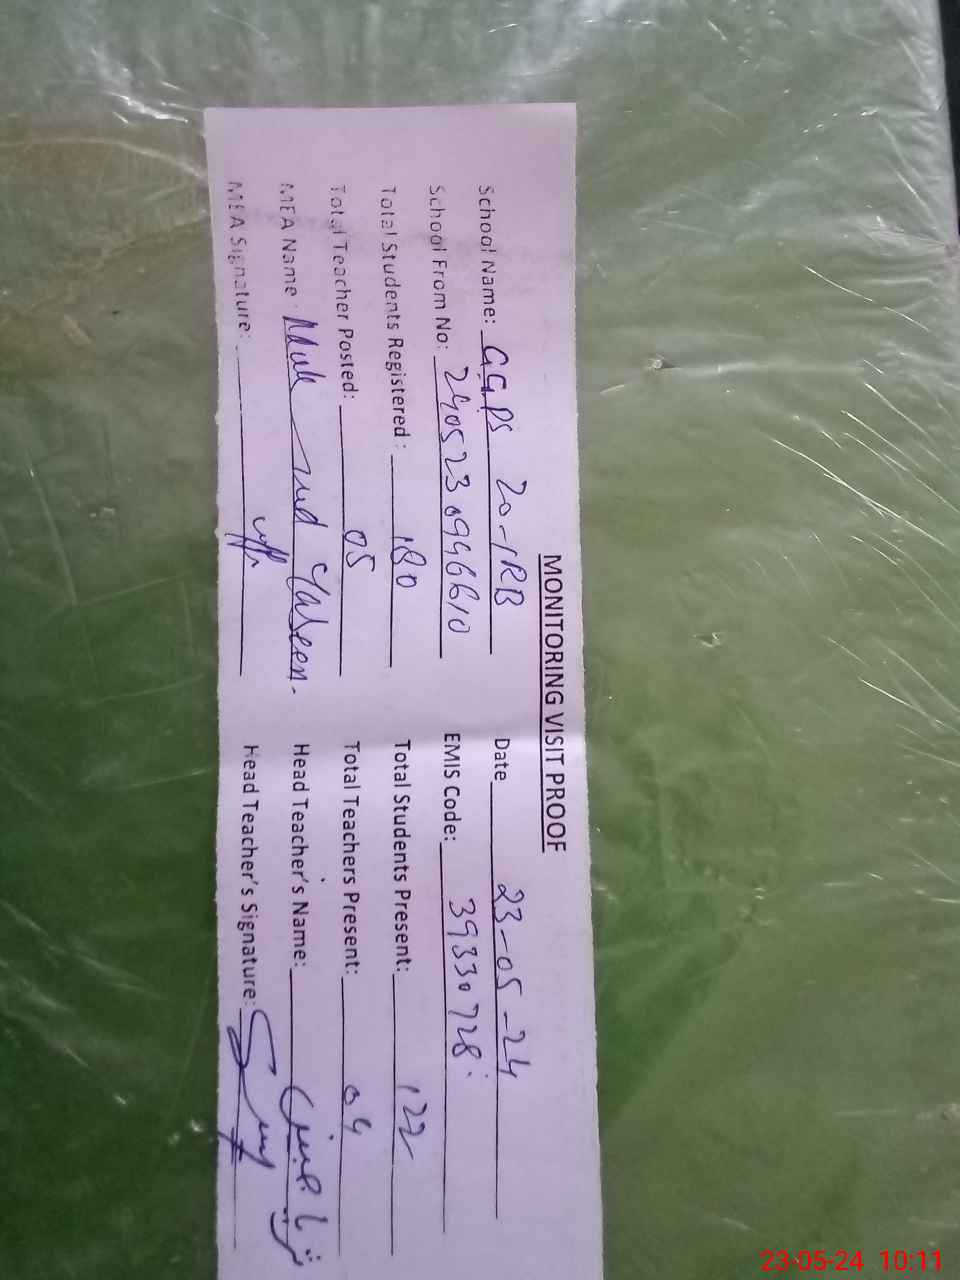 MONITORING VISIT PROOF
School Name: GGPS 20-1RB Date 23-05-24
School From No: EMIS Code: 39330728
Total Students Registered : 180 Total Students Present: 122
Total Teacher Posted: 05 Total Teachers Present: 04
MEA Name : Yaseen. Head Teacher's Name:
MEA Signature: Head Teacher's Signature:
23-05-24 10:11